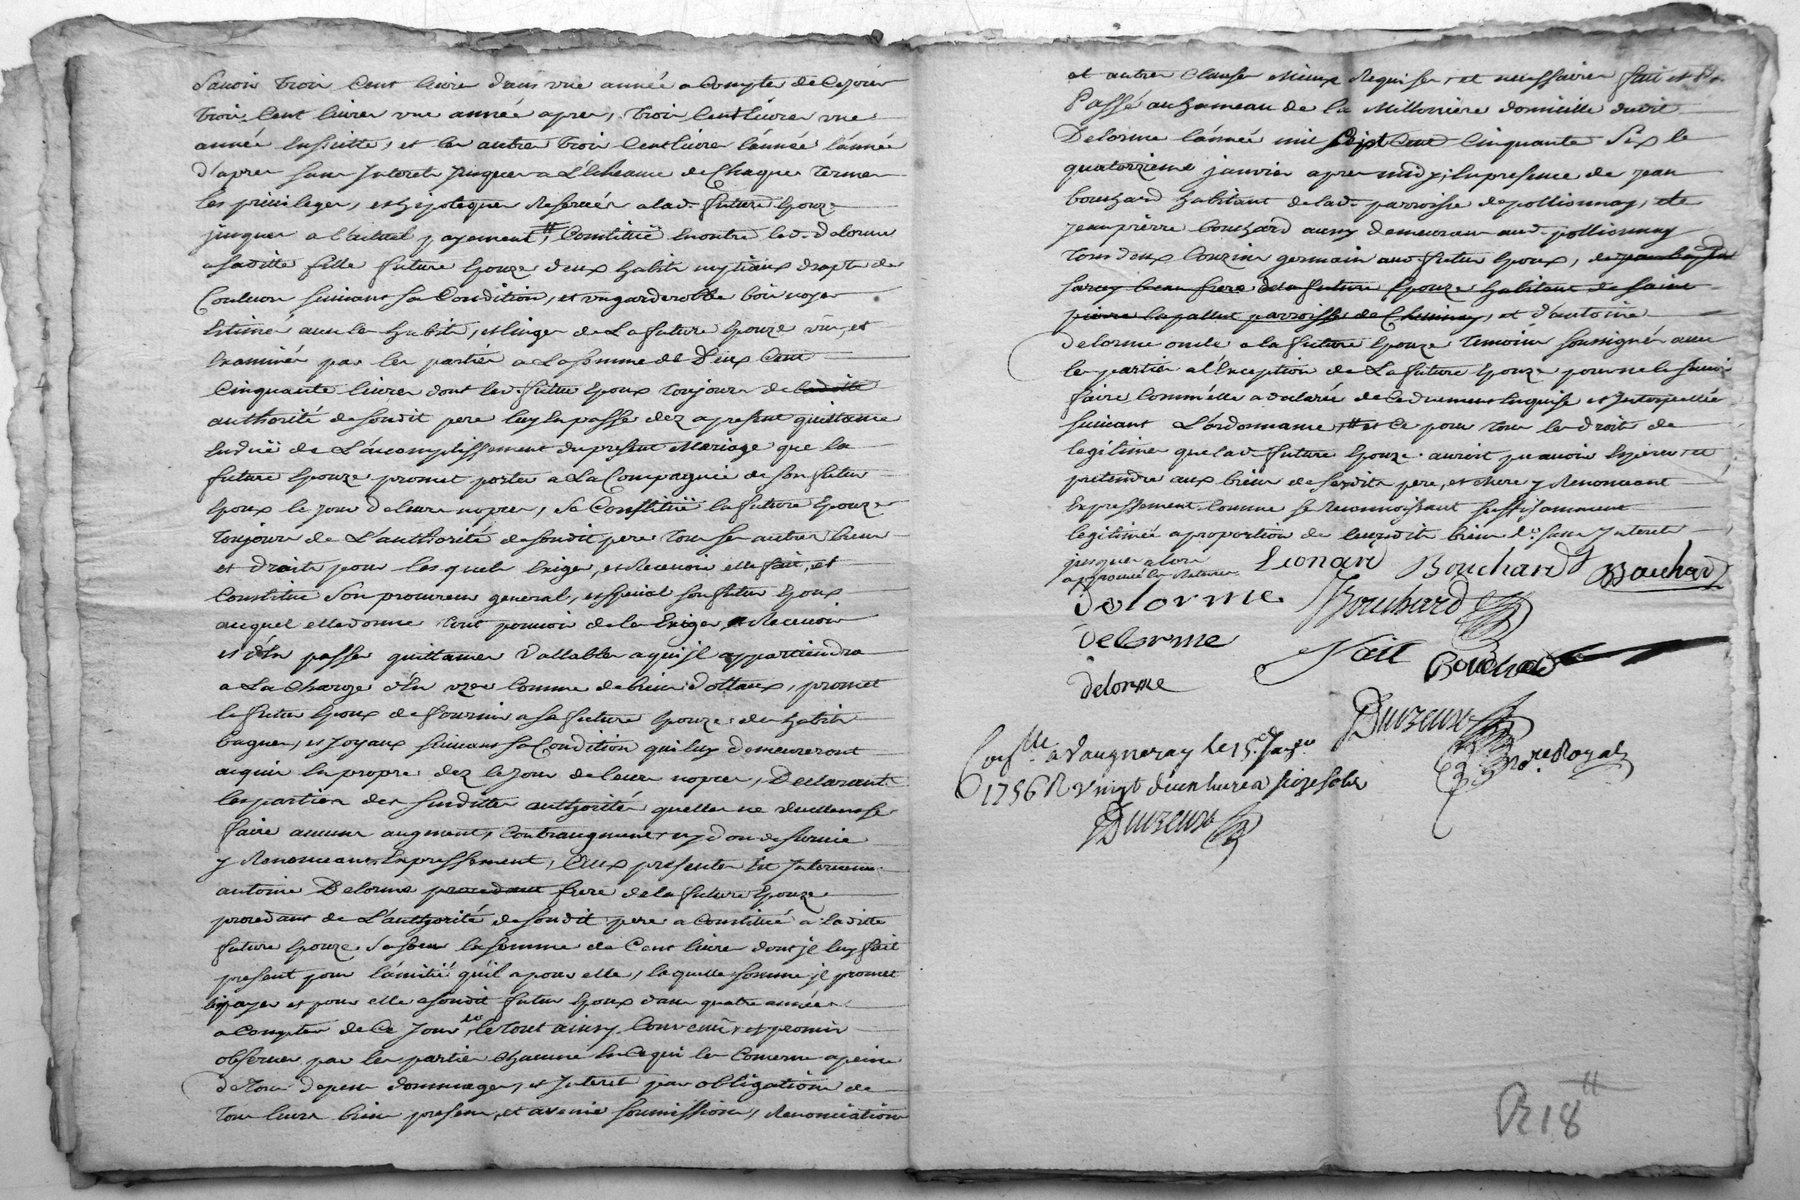 Savoir trois Cent livres dans une année a Compter de Ce jour
trois Cent livres une année apres, trois Cent livres une
année Ensuitte, et les autres trois Cent livres l'année
d'apres sans Interets jusques a L'Echeance de Chaque termes
les privileges, et hipoteques Reservés a lad. future Epouze
jusques a l'actuel payement, # Constitüe Encontre led. delorme
a saditte fille future Epouze deux habits nuptiaux drapt de
Couleur suivant sa Condition, et un garderobbe bois noyer
Estimé avec les habits, et linges de La future Epouze vûs, et
Examinés par les parties a La somme de Deux Cent
Cinquante livres dont led. futur Epoux toujours de laditte
authorité de sondit pere luy En passe dez a present quittance
En düe de L'accomplissement du present Mariage que la
future Epouze promet porter a La Compagnie de son futur
Epoux le jour de leurs nopces, Se Constitüe la future Epouze
toujours de L'authorité de sondit pere tous ses autres biens
et droits pour lesquels Exiger, et Recevoir elle fait, et
Constitue son procureur general, et special son futur Epoux
auquel elle donne tout pouvoir de les Exiger, et Recevoir
et d'En passer quittances vallables a qui il appartiendra
a La Charge d'En uzer Comme de biens dottaux, promet
le futur Epoux de fournir a sa future Epouze des habits
bagues, et Joyaux suivant sa Condition qui luy demeureront
acquis En propre dez le jour de leurs nopces, Declarant
les parties des susdittes authorités quelles ne veullent se
faire aucuns augment, Contraugment, ny don de survie
y Renonceant Expressement, Aux presentes Est Intervenu
antoine Delorme procedant frere de la future Epouze
procedant de L'authorité de sondit pere a Constitué a laditte
future Epouze Sa soeur la somme de Cent livres dont il luy fait
present pour l'amitié qu'il a pour elle, laquelle somme il promet
payer et pour elle a sondit futur Epoux dans quatre années
a Compter de Ce Jour le tout ainsy Convenû, et promis
observer par les parties Chacune En Ce qui les Concerne a peine
de tous depens dommages, et Interets par obligations de
tous leurs biens presens, et avenir soumissions, Renonciations
et autres Clauses Mieux Requises, et necessaires fait et
Passé au hameau de la Millonniere domicille dudit
Delorme l'année mil Sept Cent Cinquante Six le
quatorzieme janvier apres midy, En presence de jean
bouchard habitant de lad. parroisse de pollionnay, et de
jean pierre bouchard aussy demeurant aud. pollionnay
tous deux Cousins germains aud. futur Epoux, de jean baptiste
sarcey beau frere de la future Epouze habitant de saint
pierre la pallud parroisse de Chevinay, et d'antoine
delorme oncle a la future Epouze temoins soussignés avec
les parties a l'Exception de La future Epouze pour ne le savoir
faire Comm'elle a declarée de Ce duement Enquise et Interpellée
suivant L'ordonnance, # et Ce pour tous les droits de
legitimes que lad. future Epouze auroit pu avoir Esperer, et
pretendre aux biens de sesdits pere, et mere y Renonceant
Expressement Comme se Reconnoissant suffisamment
legitimée a proportion de leursdits biens & sans Interets
jusques alors
approuvé les Ratures Leonard Bouchard Bouchard
delorme Bouchard
delorme Fait Bouchard
delorme
Duvzeuse
nore. Royal
Conllé. a Vaugneray le 15e. Janvier
1756 R vingt deux livres seize sols
Duvzeuse
R 18 #